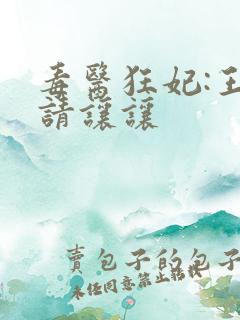 毒醫狂妃:王
請讓讓
賣包子的包子
未經同意禁止轉載